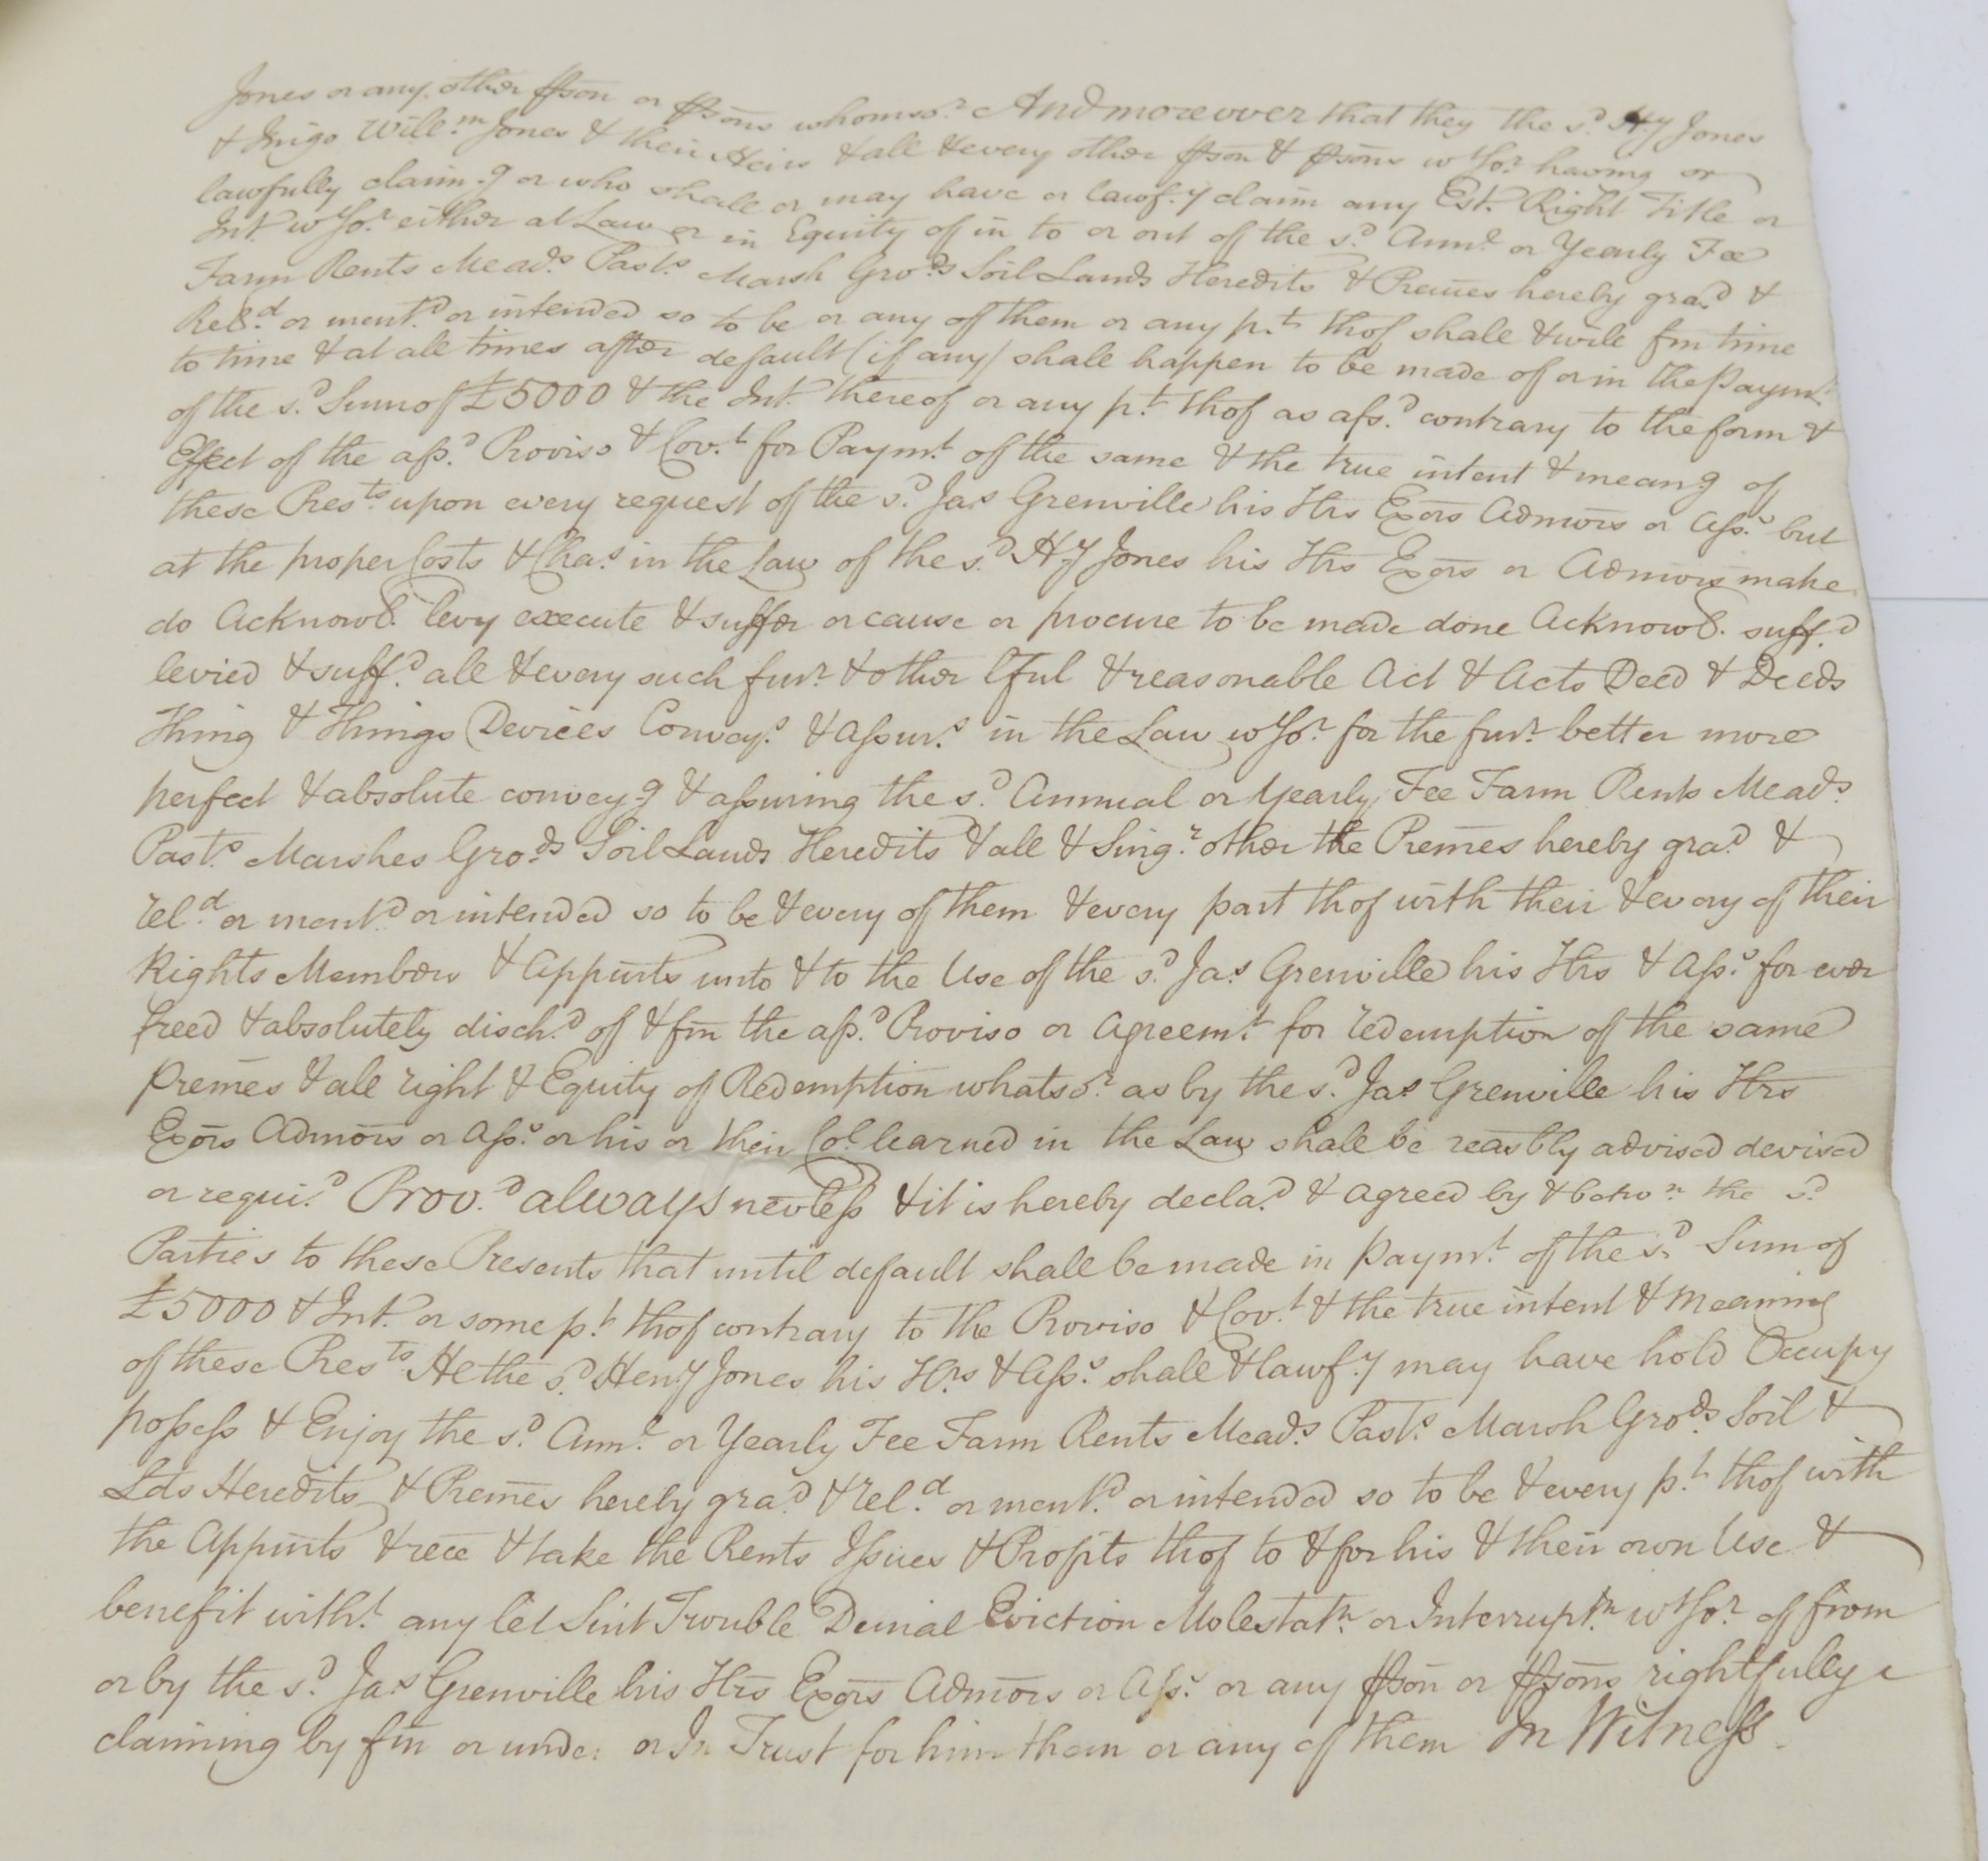 Jones or any other pson or psons whomsor. And moreover that they the sd. Hy Jones
& Inigo Willm. Jones & their Heirs & all & every other pson & psons wtsor. having or
lawfully claimg. or who shall or may have or lawfy. claim any Est. Right Title or
Int. wtsor. either at Law or in Equity of in to or out of the sd. Annl. or Yearly Fee
Farm Rents Meads. Pasts. Marsh Grods. Soil Lands Heredits & Premes hereby grad. &
Reld. or mentd. or intended so to be or any of them or any pt. thof shall & will fm time
to time & at all times after default (if any) shall happen to be made of or in the Paymt.
of the sd. Sum of £5000 & the Int. thereof or any pt. thof as afsd. contrary to the form &
Effect of the afsd. Proviso & Covt. for Paymt. of the same & the true intent & meang. of
these Prests. upon every request of the sd. Jas. Grenville his Hrs Exors Admors or Asss. but
at the proper Costs & Chas. in the Law of the sd. Hy Jones his Hrs Exors or Admors make
do Acknowl. levy execute & suffer or cause or procure to be made done Acknowl. suffd.
levied & suffd. all & every such furr. & other lful & reasonable Act & Acts Deed & Deeds
Thing & Things Devices Conveys. & Assurs. in the Law wtsor. for the furr. better more
perfect & absolute conveyg. & assuring the sd. Annual or Yearly Fee Farm Rents Meads.
Pasts. Marshes Grods. Soil Lands Heredits & all & Singr. other the Premes hereby grad. &
reld. or mentd. or intended so to be & every of them & every part thof with their & every of their
Rights Members & Appurts unto & to the Use of the sd. Jas. Grenville his Hrs & Asss. for ever
freed & absolutely dischd. of & fm the afsd. Proviso or Agreemt. for redemption of the same
Premes & all right & Equity of Redemption whatsor. as by the sd. Jas. Grenville his Hrs
Exors Admors or Asss. or his or their Col. learned in the Law shall be reasbly advised devised
or requid. Provd. always nevless & it is hereby declad. & agreed by & betwn. the sd.
Parties to these Presents that until default shall be made in paymt. of the sd. Sum of
£5000 & Int. or some pt. thof contrary to the Proviso & Covt. & the true intent & Meaning
of these Prests. He the sd. Heny Jones his Hrs & Asss. shall & lawfy. may have hold Occupy
possess & Enjoy the sd. Annl. or Yearly Fee Farm Rents Meads. Pasts. Marsh Grods. Soil &
Lds Heredits & Premes hereby grad. & reld. or mentd. or intended so to be & every pt. thof with
the Appurts & rece & take the Rents Issues & Profits thof to & for his & their own Use &
benefit witht. any let Suit Trouble Denial Eviction Molestatn. or Interruptn. wtsor. of from
or by the sd. Jas. Grenville his Hrs Exors Admors or Asss. or any pson or psons rightfully
claiming by fm or under or In Trust for him them or any of them In Witness